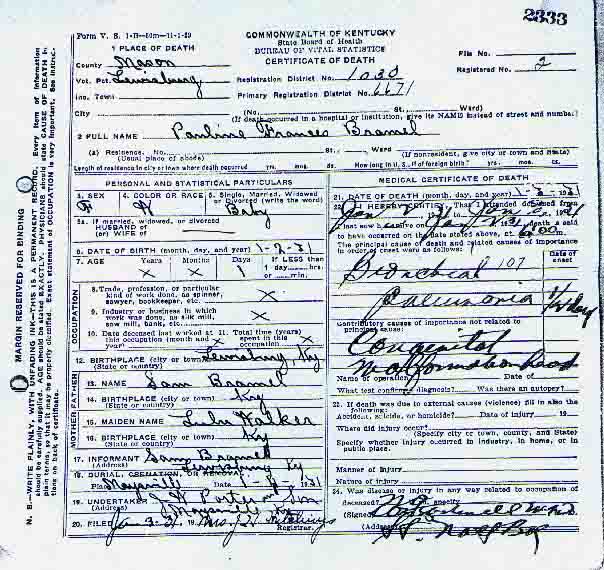 2333
Form V. S. 1-B—50m—11-1-29
COMMONWEALTH OF KENTUCKY
State Board of Health
BUREAU OF VITAL STATISTICS
CERTIFICATE OF DEATH
1 PLACE OF DEATH
County Mason
Vot. Pct. Lewisburg
Inc. Town
City
File No.
Registered No. 2
Registration District No. 1030
Primary Registration District No. 6671
(No. St., Ward)
(If death occurred in a hospital or institution, give its NAME instead of street and number)
2 FULL NAME Pauline Frances Bramel
(a) Residence. No. St., Ward
(Usual place of abode) (If nonresident, give city or town and State)
Length of residence in city or town where death occurred yrs. mos. ds. How long in U. S., if of foreign birth? yrs. mos. ds.
PERSONAL AND STATISTICAL PARTICULARS
3. SEX 4. COLOR OR RACE 5. Single, Married, Widowed or Divorced (write the word)
F W Baby
5a. If married, widowed, or divorced
HUSBAND of
(or) WIFE of
6. DATE OF BIRTH (month, day, and year) 1-2-31
7. AGE Years Months Days If LESS than
x x 1 1 day, hrs.
or min.
OCCUPATION
8. Trade, profession, or particular
kind of work done, as spinner,
sawyer, bookkeeper, etc. x
9. Industry or business in which
work was done, as silk mill,
saw mill, bank, etc. x
10. Date deceased last worked at 11. Total time (years)
this occupation (month and spent in this
year) x occupation x
12. BIRTHPLACE (city or town) Lewisburg Ky
(State or country)
MOTHER FATHER
13. NAME Sam Bramel
14. BIRTHPLACE (city or town) Ky
(State or country)
15. MAIDEN NAME Lulu Walker
16. BIRTHPLACE (city or town) Ky
(State or country)
17. INFORMANT Sam Bramel
(Address) Lewisburg Ky
18. BURIAL, CREMATION, OR REMOVAL
Place Maysville Date 1- 31
19. UNDERTAKER J H Porter Son
(Address) Maysville Ky
20. FILED Jan 3-31 19 Mrs. J.
Registrar.
MEDICAL CERTIFICATE OF DEATH
21. DATE OF DEATH (month, day, and year) 1-3-31
22. I HEREBY CERTIFY, That I attended deceased from
Jan
last saw alive on Jan 31, death is said
to have occurred on the date stated above, at
The principal cause of death and related causes of importance
in order of onset were as follows: Date of
onset
107
Pneumonia 1/2 day
Contributory causes of importance not related to
principal cause:
Congenital
Malformation
Name of operation
What test confirmed diagnosis? Was there an autopsy?
23. If death was due to external causes (violence) fill in also the
following:
Accident, suicide, or homicide? Date of injury 19
Where did injury occur?
(Specify city or town, county, and State)
Specify whether injury occurred in industry, in home, or in
public place.
Manner of injury
Nature of injury
24. Was disease or injury in any way related to occupation of
deceased? No If so, specify
(Signed) M.D.
(Address)
MARGIN RESERVED FOR BINDING
N. B.—WRITE PLAINLY, WITH UNFADING INK—THIS IS A PERMANENT RECORD. Every item of information
should be carefully supplied. AGE should be stated EXACTLY. PHYSICIANS should state CAUSE OF DEATH in
plain terms, so that it may be properly classified. Exact statement of OCCUPATION is very important. See instruc-
tions on back of certificate.